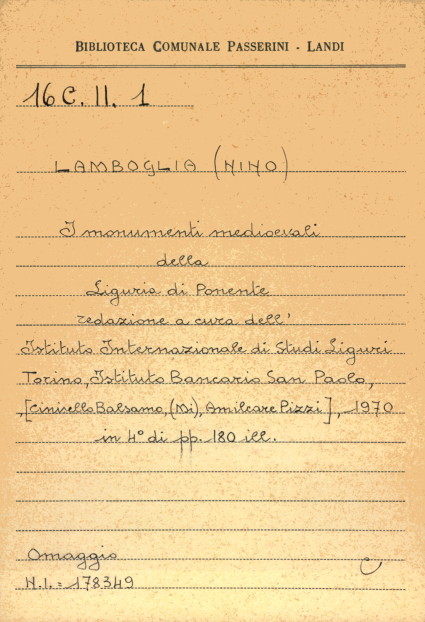 BIBLIOTECA COMUNALE PASSERINI - LANDI
16 C. II. 1
LAMBOGLIA (NINO)
I monumenti medioevali
della
Liguria di Ponente
redazione a cura dell'
Istituto Internazionale di Studi Liguri
Torino, Istituto Bancario San Paolo,
,[Cinisello Balsamo, (Mi), Amilcare Pizzi], 1970
in 4° di pp. 180 ill.
Omaggio
N.I. = 178349